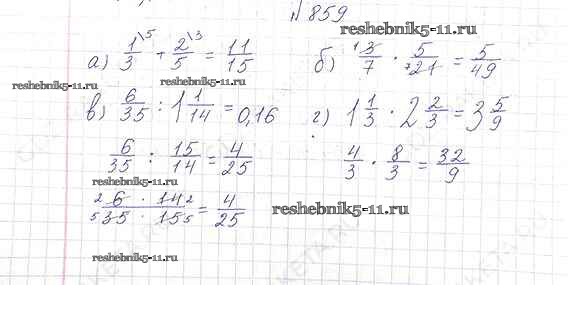 № 859
reshebnik5-11.ru
а) 1/3 \5 + 2/5 \3 = 11/15 б) 1 3/7 · 5/7 21 = 5/49
reshebnik5-11.ru reshebnik5-11.ru
в) 6/35 : 1 1/14 = 0,16 г) 1 1/3 · 2 2/3 = 3 5/9
6/35 : 15/14 = 4/25 4/3 · 8/3 = 32/9
reshebnik5-11.ru
2 6 · 14 2 / 5 35 · 15 5 = 4/25 reshebnik5-11.ru
reshebnik5-11.ru